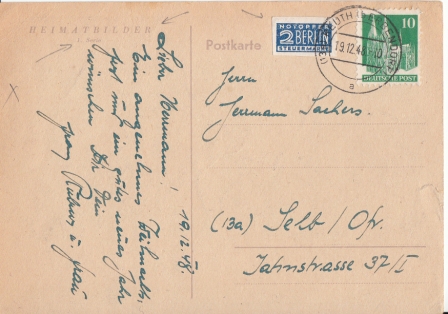 HEIMATBILDER
Serie
Postkarte
NOTOPFER
2 BERLIN
STEUERMARKE
19.12.48
a
10
DEUTSCHE POST
19.12.48.
Lieber Hermann!
Ein angenehmes Weihnachts-
fest und ein gutes neues Jahr
wünschen Dir Dein
u. Frau
Herrn
Hermann
(13a) Selb / Ofr.
Jahnstrasse 37/I